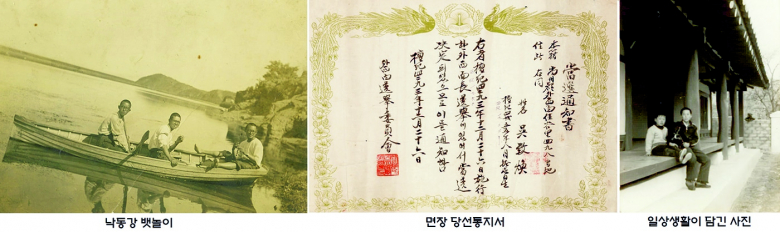 當選通知書
本籍 尙州郡外西面
住所 右同
姓名 吳致煥
右者檀紀四二九三年十二月二十六日施行
한外西面長選擧에있어서當選
決定되였으므로이를通知함
檀紀四二九三年十二月二十六日
外西面選擧委員會
낙동강 뱃놀이
면장 당선통지서
일상생활이 담긴 사진